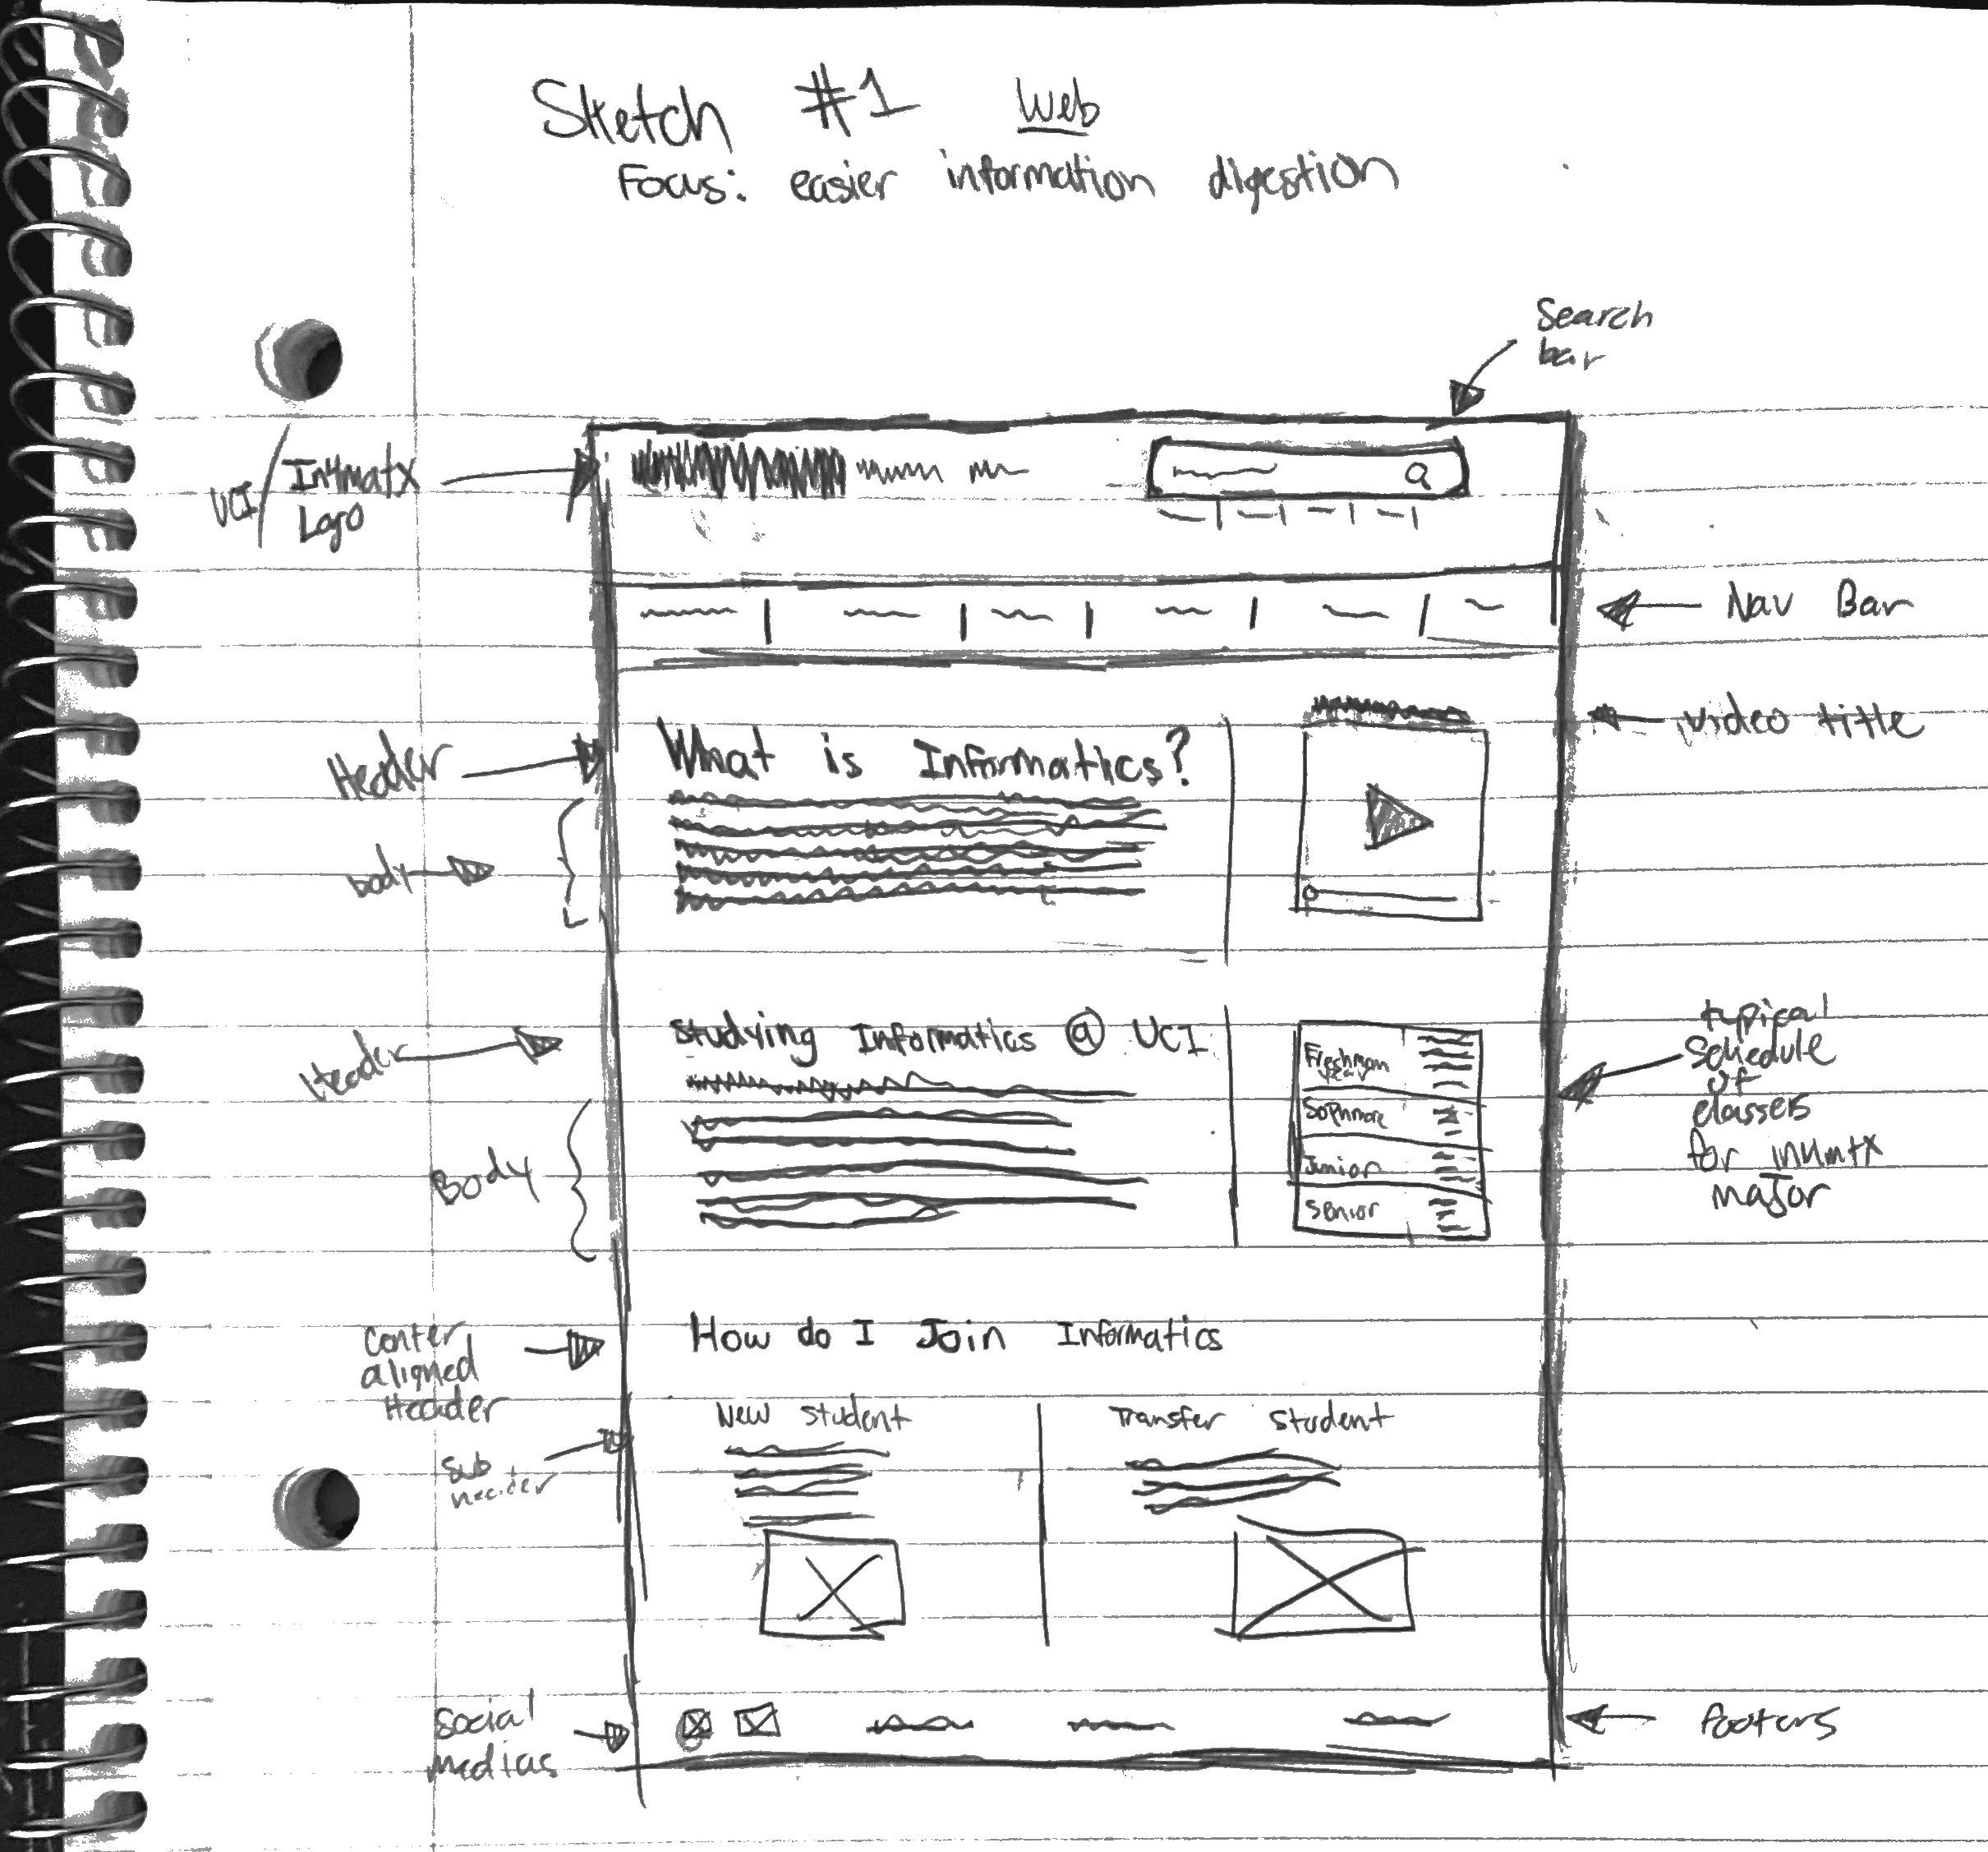 Sketch #1 Web
Focus: easier information digestion
Search
bar
UCI / In4matx
Logo
Nav Bar
Video title
Header
What is Informatics?
body
Header
Studying Informatics @ UCI
Freshman
year
Sophmore
Junior
Senior
typical
schedule
of
classes
for in4mtx
major
Body
Center
aligned
Header
How do I Join Informatics
Sub
header
New Student
Transfer Student
Social
medias
footers